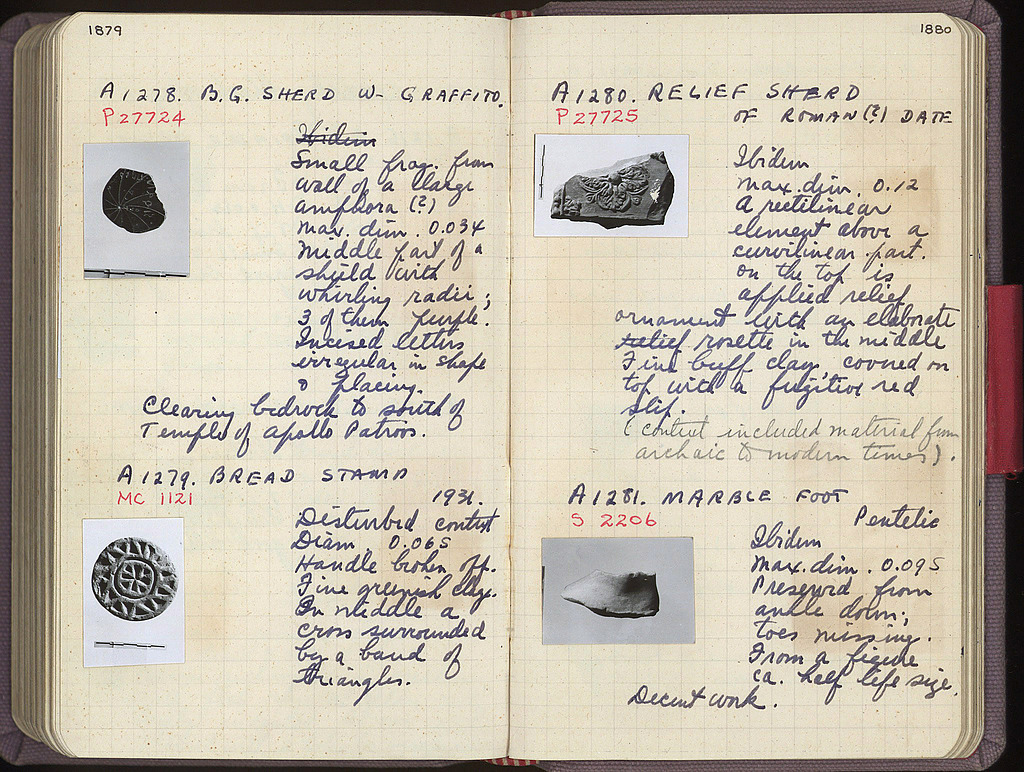 1879
A1278. B.G. SHERD W- GRAFFITO.
P27724
Ibidem
Small frag. from
wall of a large
amphora (?)
Max. dim. 0.034
Middle part of a
shield with
whirling radii;
3 of them purple.
Incised letters
irregular in shape
& placing.
Clearing bedrock to south of
Temple of Apollo Patroos.
A1279. BREAD STAMP
MC 1121
1931.
Disturbed context
Diam 0.065
Handle broken off.
Fine greenish clay.
In middle a
cross surrounded
by a band of
triangles.
1880
A1280. RELIEF SHERD
P27725
OF ROMAN(?) DATE
Ibidem
Max. dim. 0.12
A rectilinear
element above a
curvilinear part.
On the top is
applied relief
ornament with an elaborate
relief rosette in the middle
Fine buff clay covered on
top with a fugitive red
slip.
(context included material from
archaic to modern times).
A1281. MARBLE FOOT
S 2206
Pentelic
Ibidem
Max. dim. 0.095
Preserved from
ankle down;
toes missing.
From a figure
ca. half life size.
Decent work.